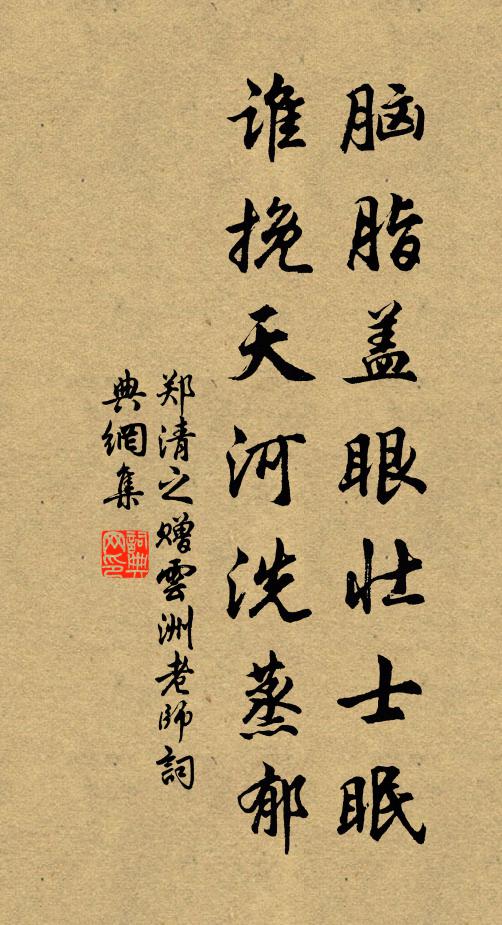 脑脂盖眼壮士眠
谁挽天河洗蒸郁
郑清之赠雲洲老师詞
典網集
詞典
网印